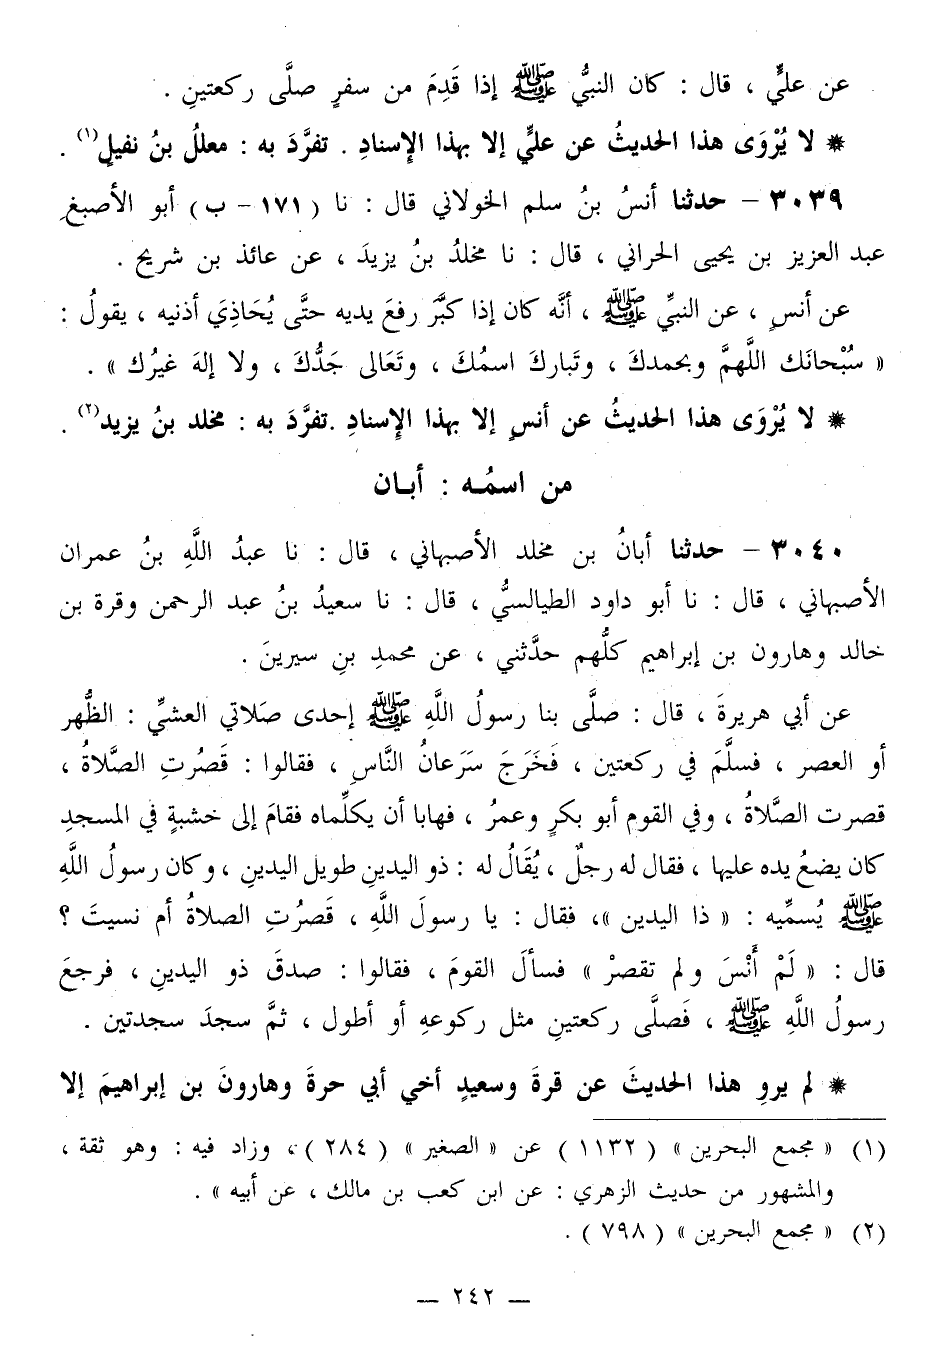 عن عليٍّ ، قال : كان النبيُّ ﷺ إذا قَدِمَ من سفرٍ صلَّى ركعتينِ .
* لا يُرْوَى هذا الحديثُ عن عليٍّ إلا بهذا الإسنادِ . تفرَّدَ به : معللُ بنُ نفيلٍ(١) .
٣٠٣٩ - حدثنا أنسُ بنُ سلم الخولاني قال : نا ( ١٧١ - ب ) أبو الأصبغِ
عبد العزيز بن يحيى الحراني ، قال : نا مخلدُ بنُ يزيدَ ، عن عائذ بن شريح .
عن أنسٍ ، عن النبيِّ ﷺ ، أنَّه كان إذا كبَّر رفعَ يديه حتَّى يُحَاذِيَ أذنيه ، يقولُ :
« سُبْحانَك اللَّهمَّ وبحمدكَ ، وتَباركَ اسمُكَ ، وتَعَالى جَدُّكَ ، ولا إلهَ غيرُك » .
* لا يُرْوَى هذا الحديثُ عن أنسٍ إلا بهذا الإسنادِ .تفرَّدَ به : مخلد بنُ يزيد(٢) .
من اسمُـه : أبـان
٣٠٤٠ - حدثنا أبانُ بن مخلد الأصبهاني ، قال : نا عبدُ اللَّهِ بنُ عمران
الأصبهاني ، قال : نا أبو داود الطيالسيُّ ، قال : نا سعيدُ بنُ عبد الرحمن وقرة بن
خالد وهارون بن إبراهيم كلُّهم حدَّثني ، عن محمدِ بنِ سيرينَ .
عن أبي هريرةَ ، قال : صلَّى بنا رسولُ اللَّهِ ﷺ إحدى صَلاتي العشيِّ : الظُّهر
أو العصر ، فسلَّمَ في ركعتين ، فَخَرَجَ سَرَعانُ النَّاسِ ، فقالوا : قَصُرتِ الصَّلاةُ ،
قصرت الصَّلاةُ ، وفي القوم أبو بكرٍ وعمرُ ، فهابا أن يكلِّماه فقامَ إلى خشبةٍ في المسجدِ
كان يضعُ يده عليها ، فقال له رجلٌ ، يُقَالُ له : ذو اليدينِ طويل اليدينِ ، وكان رسولُ اللَّهِ
ﷺ يُسمِّيه : « ذا اليدين »، فقال : يا رسولَ اللَّهِ ، قَصرُتِ الصلاةُ أم نسيتَ ؟
قال : « لَمْ أَنْسَ ولم تقصرْ » فسألَ القومَ ، فقالوا : صدقَ ذو اليدينِ ، فرجعَ
رسولُ اللَّهِ ﷺ ، فَصلَّى ركعتينِ مثل ركوعهِ أو أطول ، ثمَّ سجدَ سجدتين .
* لم يروِ هذا الحديثَ عن قرةَ وسعيدٍ أخي أبي حرةَ وهارونَ بن إبراهيمَ إلا
(١) « مجمع البحرين » ( ١١٣٢ ) عن « الصغير » ( ٢٨٤ )، وزاد فيه : وهو ثقة ،
والمشهور من حديث الزهري : عن ابن كعب بن مالك ، عن أبيه » .
(٢) « مجمع البحرين » ( ٧٩٨ ) .
— ٢٤٢ —